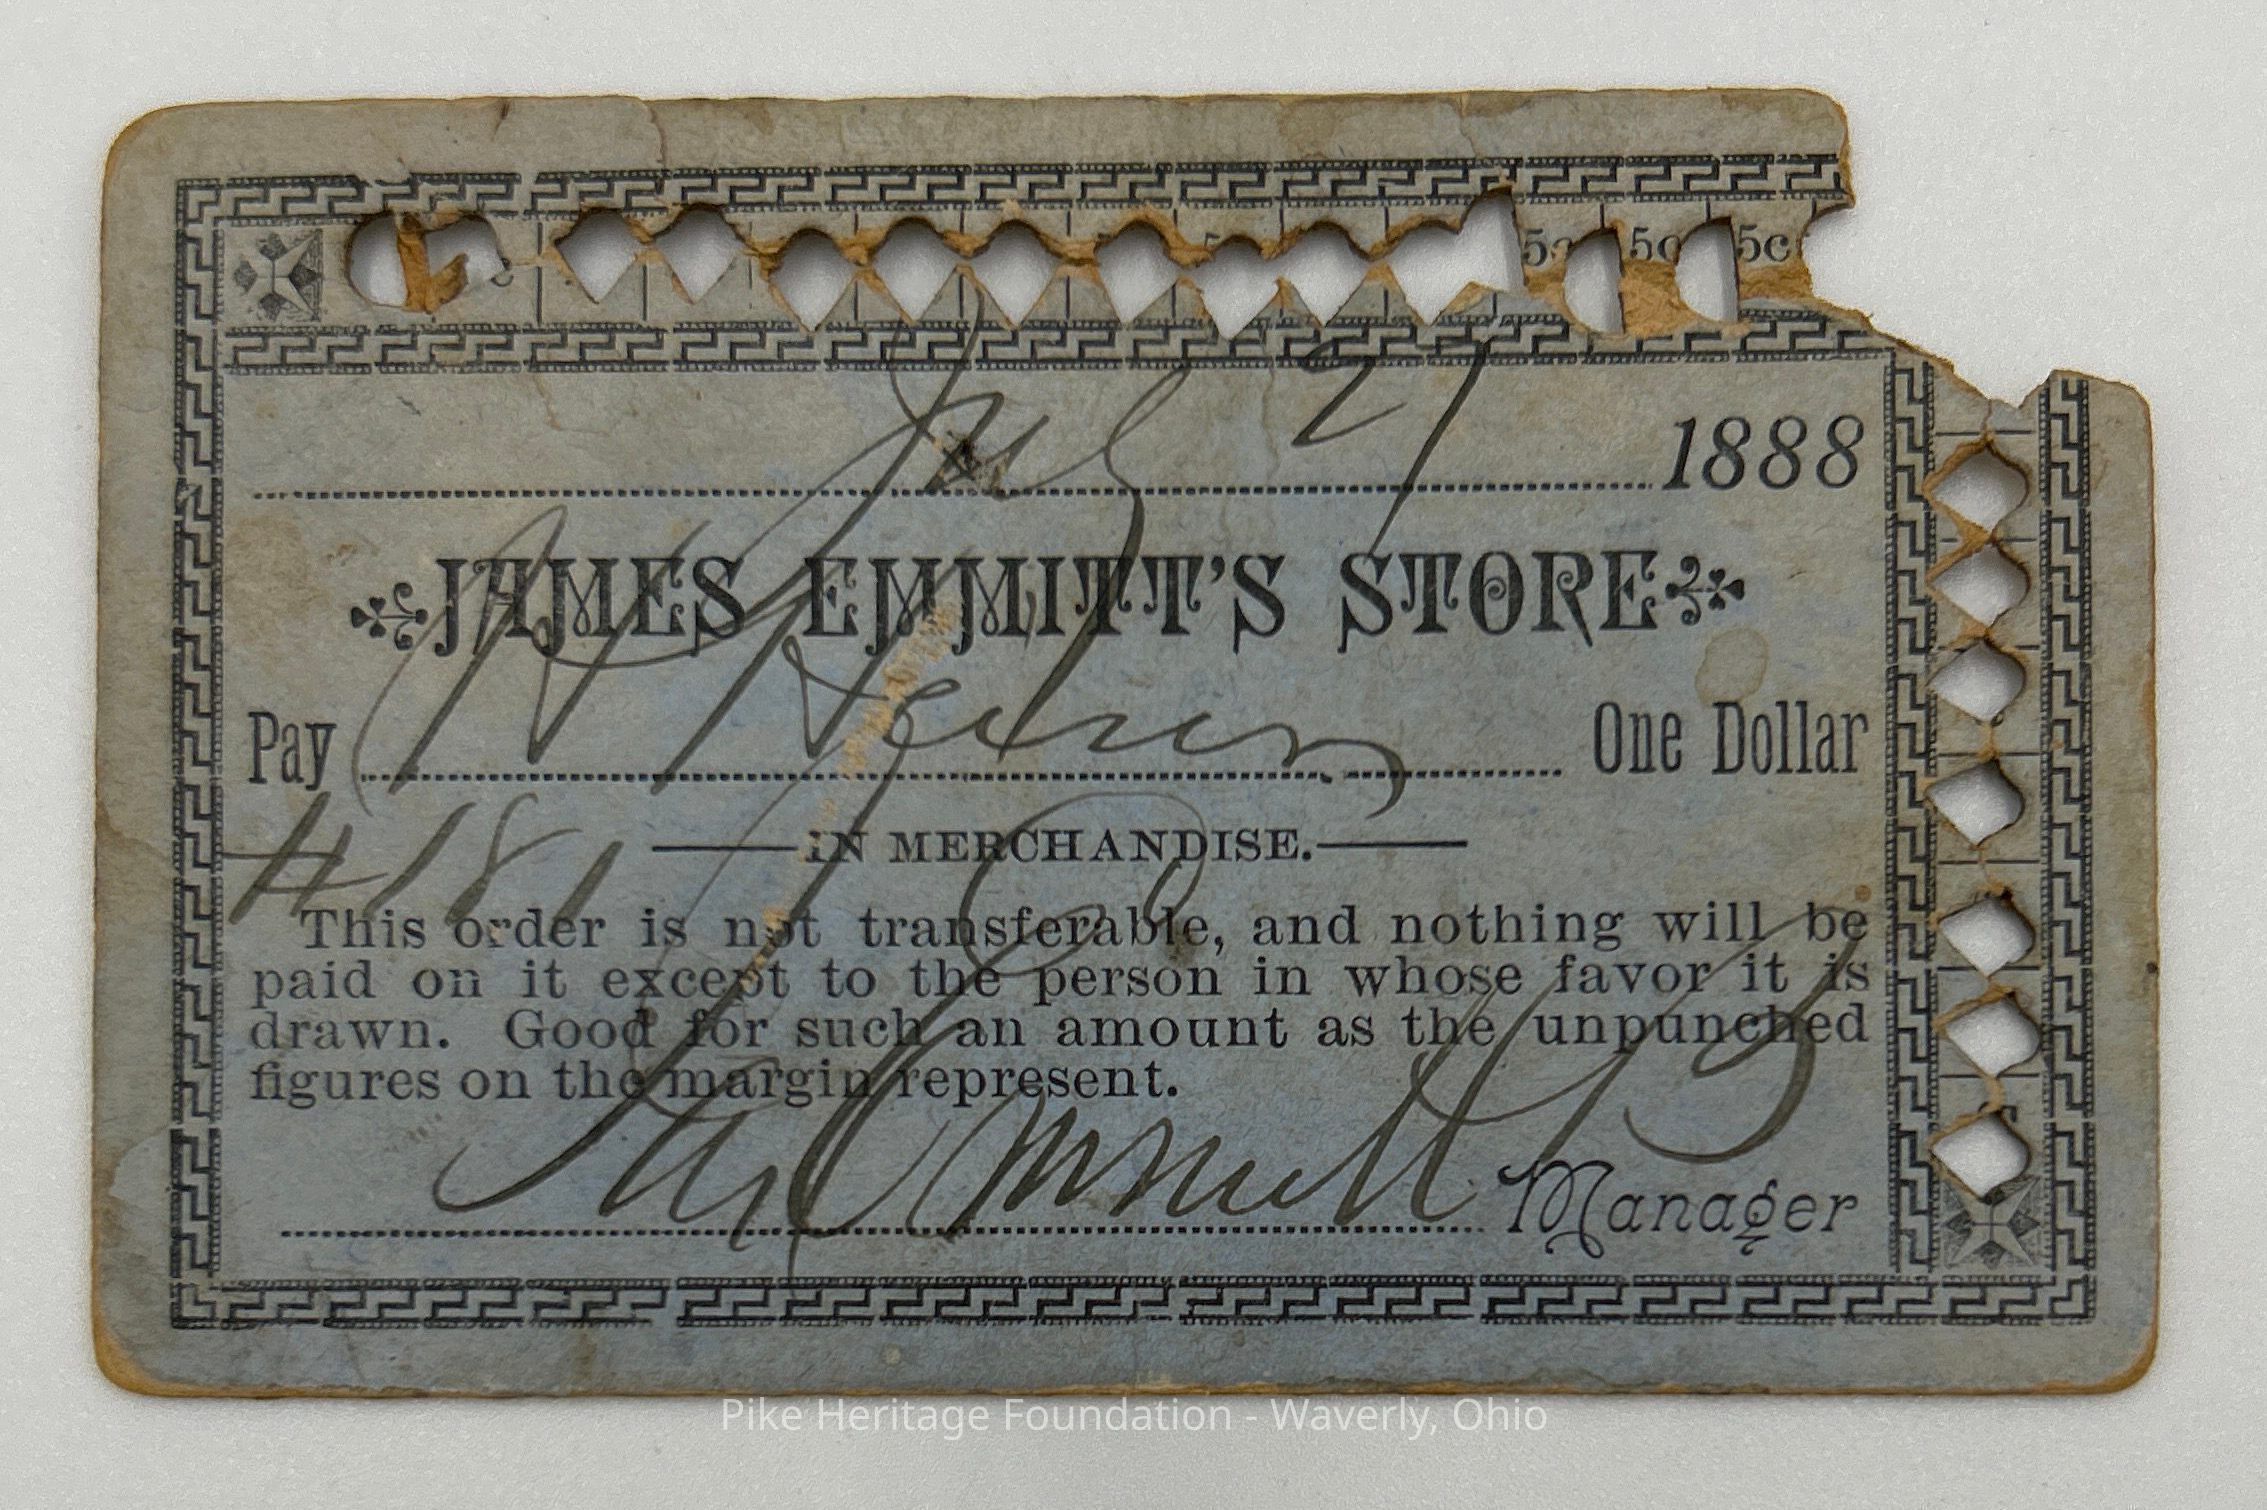 5c 5c 5c
July 27 1888
JAMES EMMITT'S STORE
Pay One Dollar
IN MERCHANDISE.
This order is not transferable, and nothing will be
paid on it except to the person in whose favor it is
drawn. Good for such an amount as the unpunched
figures on the margin represent.
Manager
Pike Heritage Foundation - Waverly, Ohio